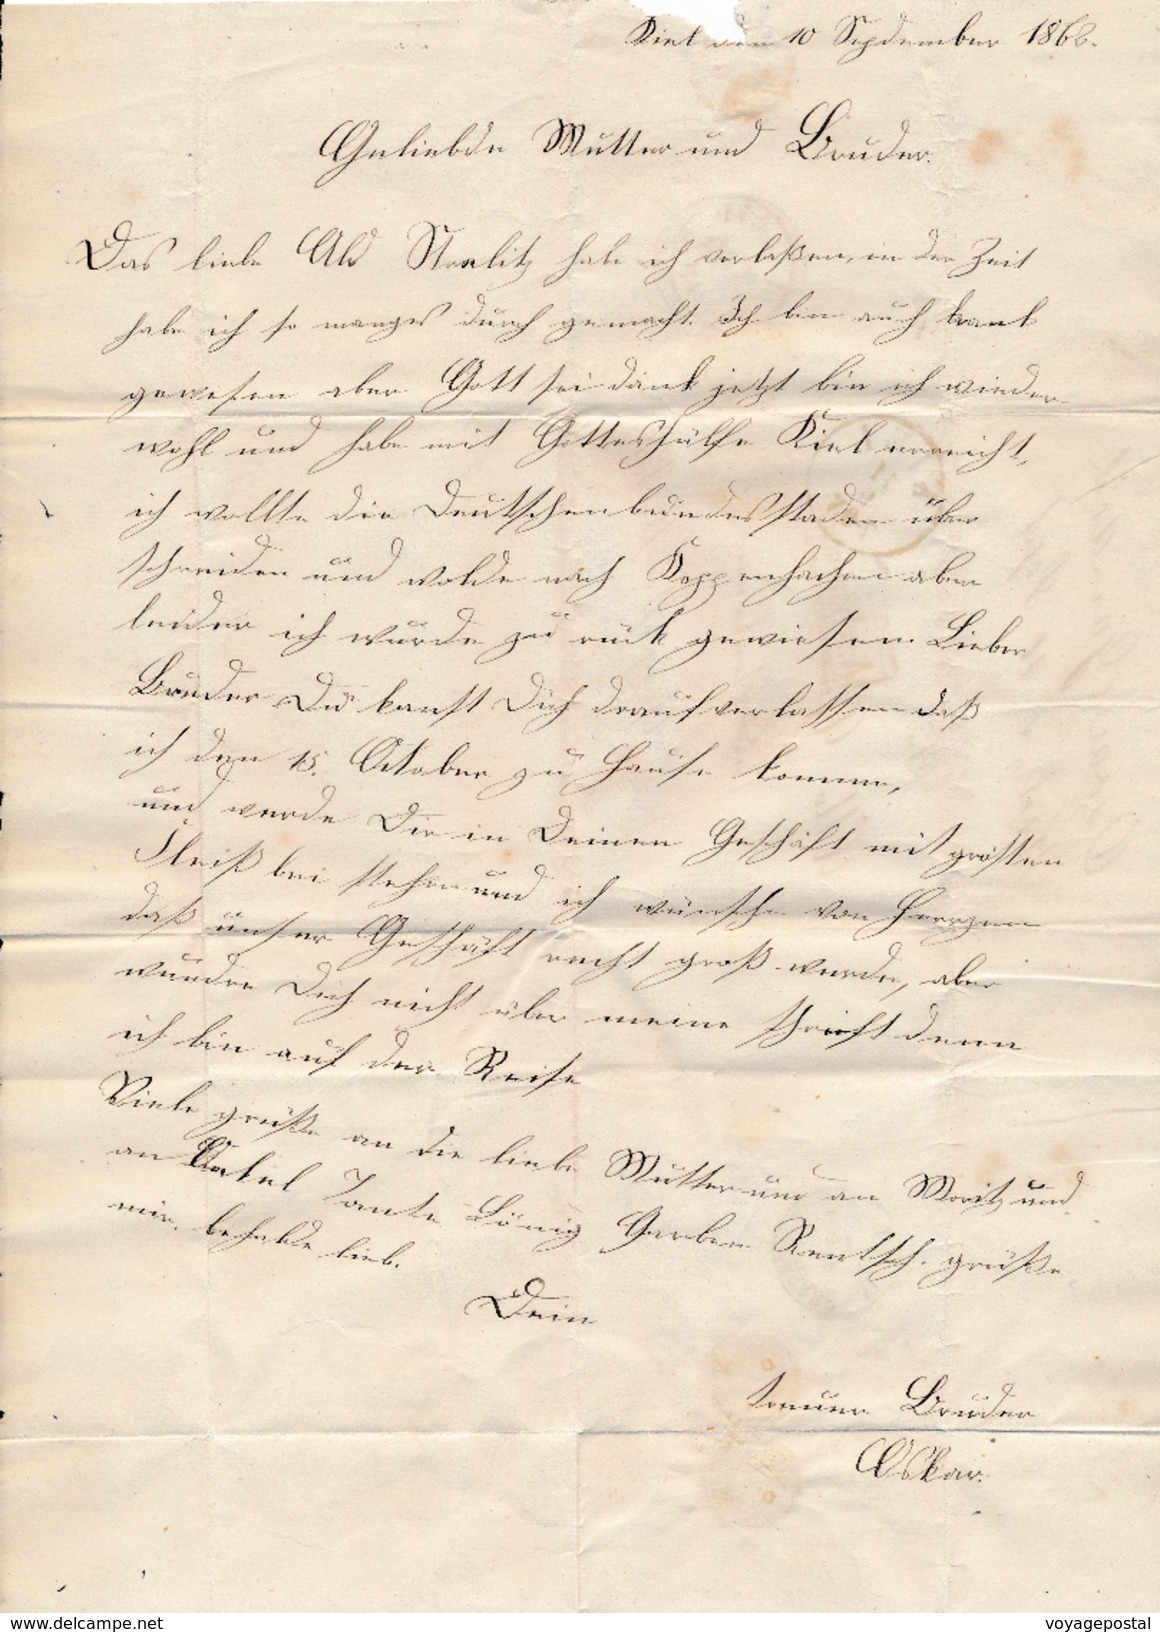 Kiel den 10 Sepdember 1868.
Geliebde Mutter und Bruder.
Das liebe Ald Strelitz habe ich verlaßen, in der Zeit
habe ich so manges durch gemacht. Ich ben auch krank
gewesen aber Gott sei dank jetzt bin ich wieder
wohl und habe mit Gotteshülfe Kiel erreicht,
ich wollte die Deutschenbundesstaden über
schreiden und wolde nach Koppenhachen aber
leider ich wurde zu rück gewiesen. Lieber
Bruder Du kanst Dich draufverlassen daß
ich den 15. October zu Hause komme,
und werde Dir in Deinen Geschäft mit grösten
Fleiß bei stehen und ich wünsche von Herrzen
daß unser Geschäft recht groß werde, aber
wundre Dich nicht über meine schrift denn
ich bin auf der Reise
Viele grüße an die liebe Mutter und an Moritz und
an Onkel Tante König Gerber Rentsch. grüße
mir. behalde lieb.
Dein
treuer Bruder
Oskar.
https://www.delcampe.net
voyagepostal